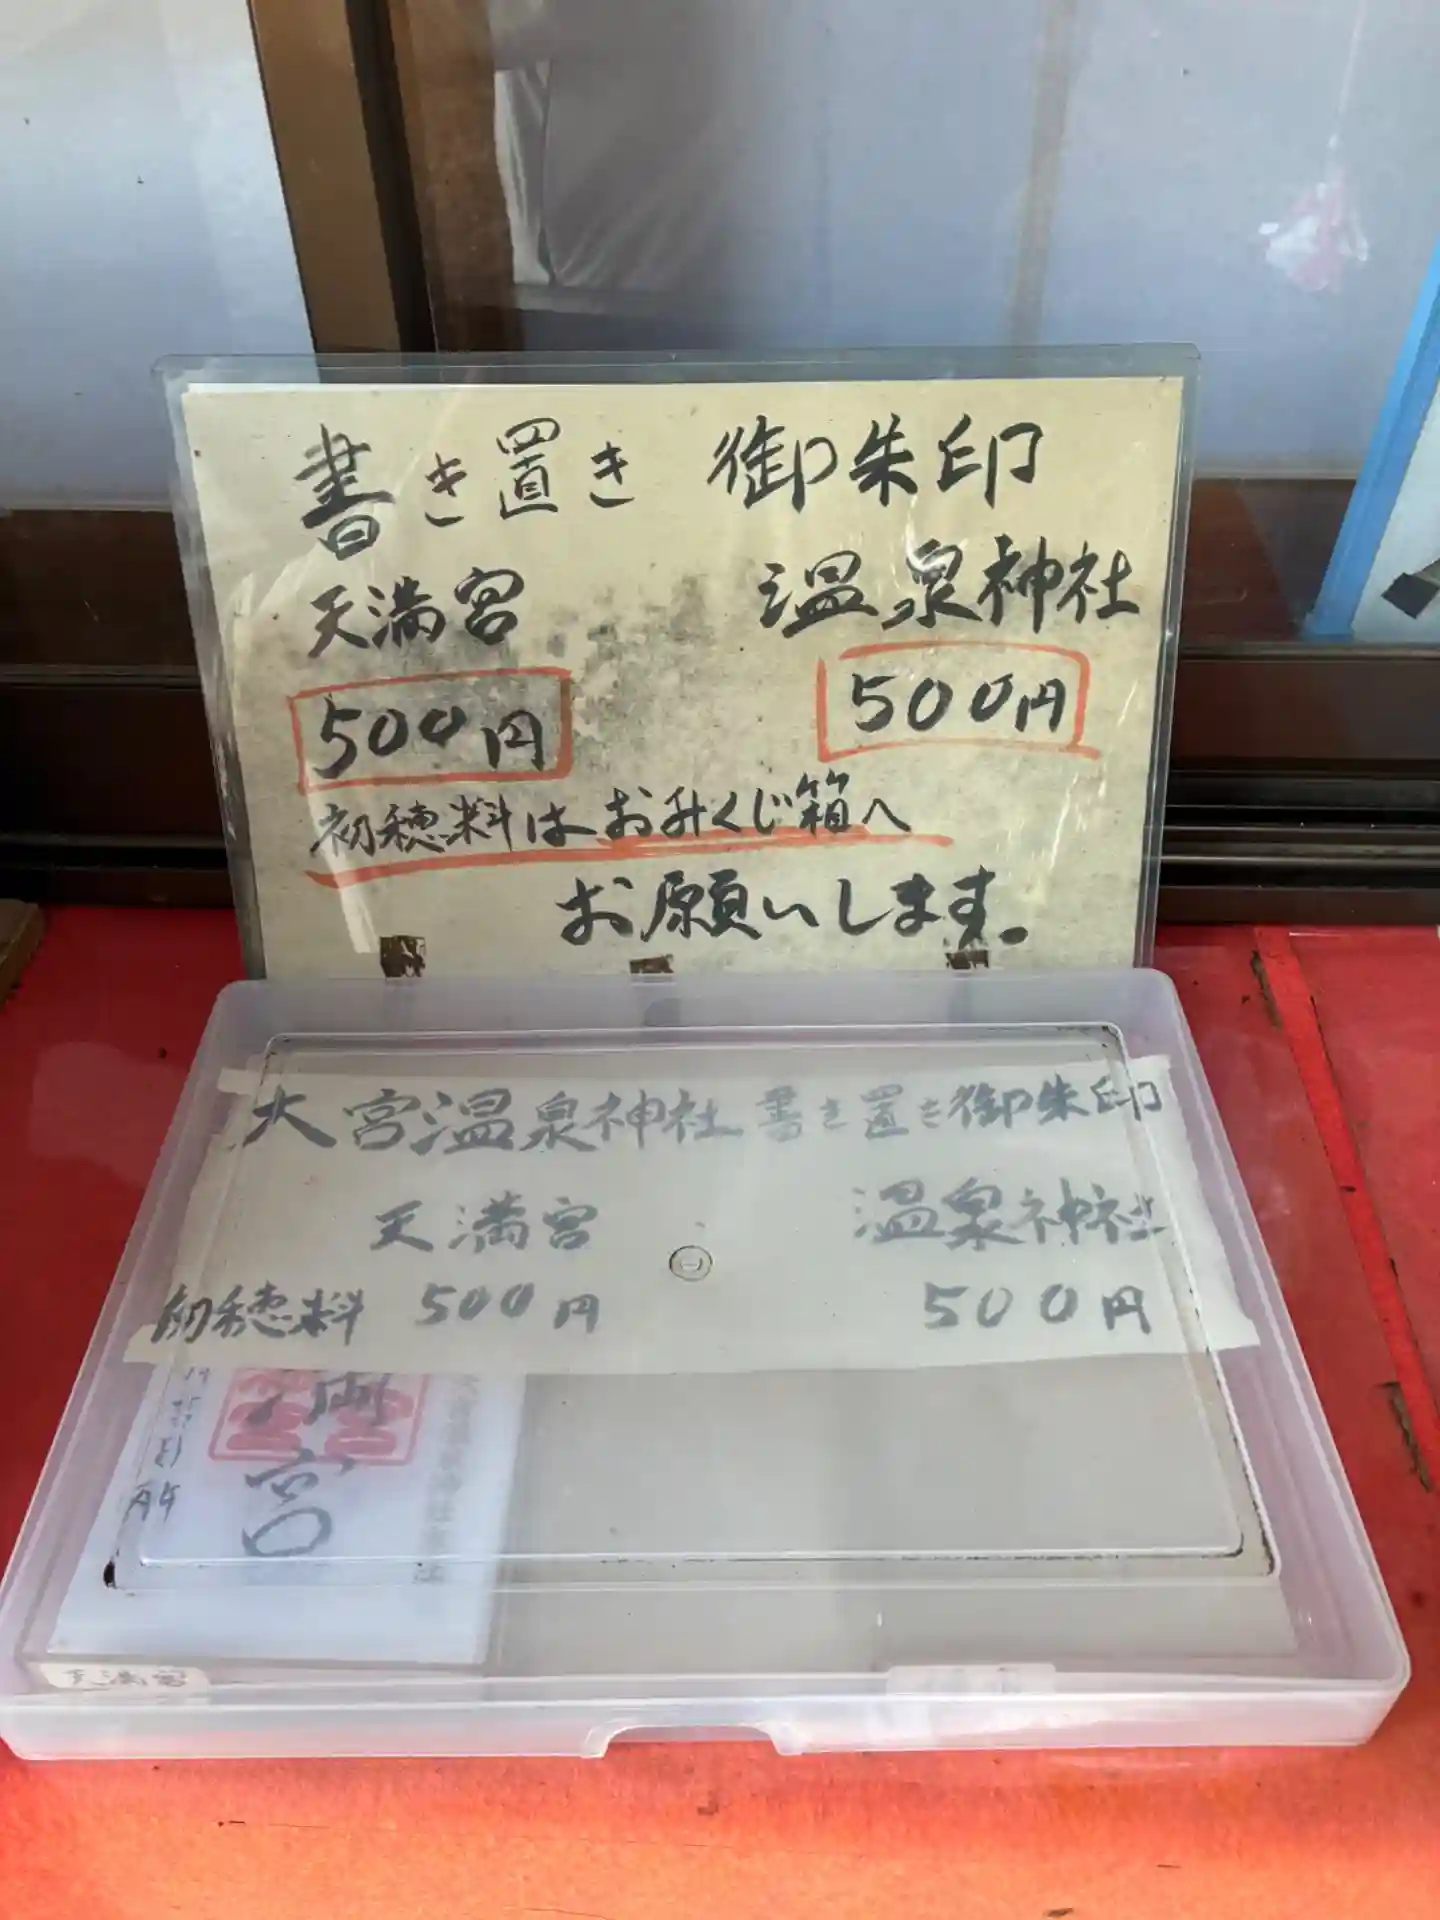 書き置き 御朱印
天満宮 温泉神社
500円 500円
初穂料はおみくじ箱へ
お願いします。
大宮温泉神社 書き置き御朱印
天満宮 温泉神社
初穂料 500円 500円
宮
天満宮